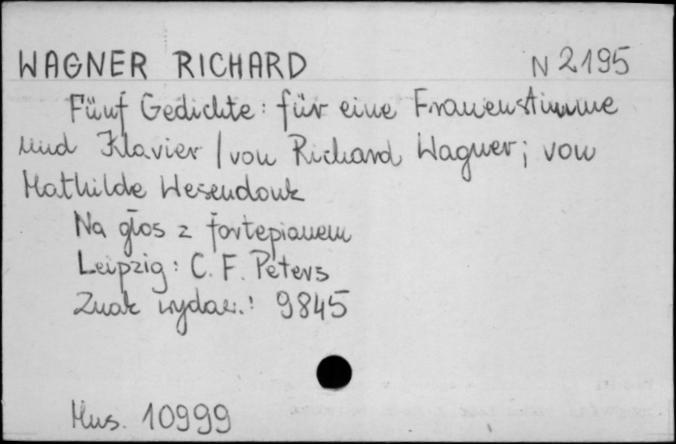 WAGNER RICHARD N 2195
Fünf Gedichte: für eine Frauenstimme
und Klavier / von Richard Wagner; von
Mathilde Wesendonk
Na głos z fortepianem
Leipzig: C. F. Peters
Znak wydaw.: 9845
Mus. 10999